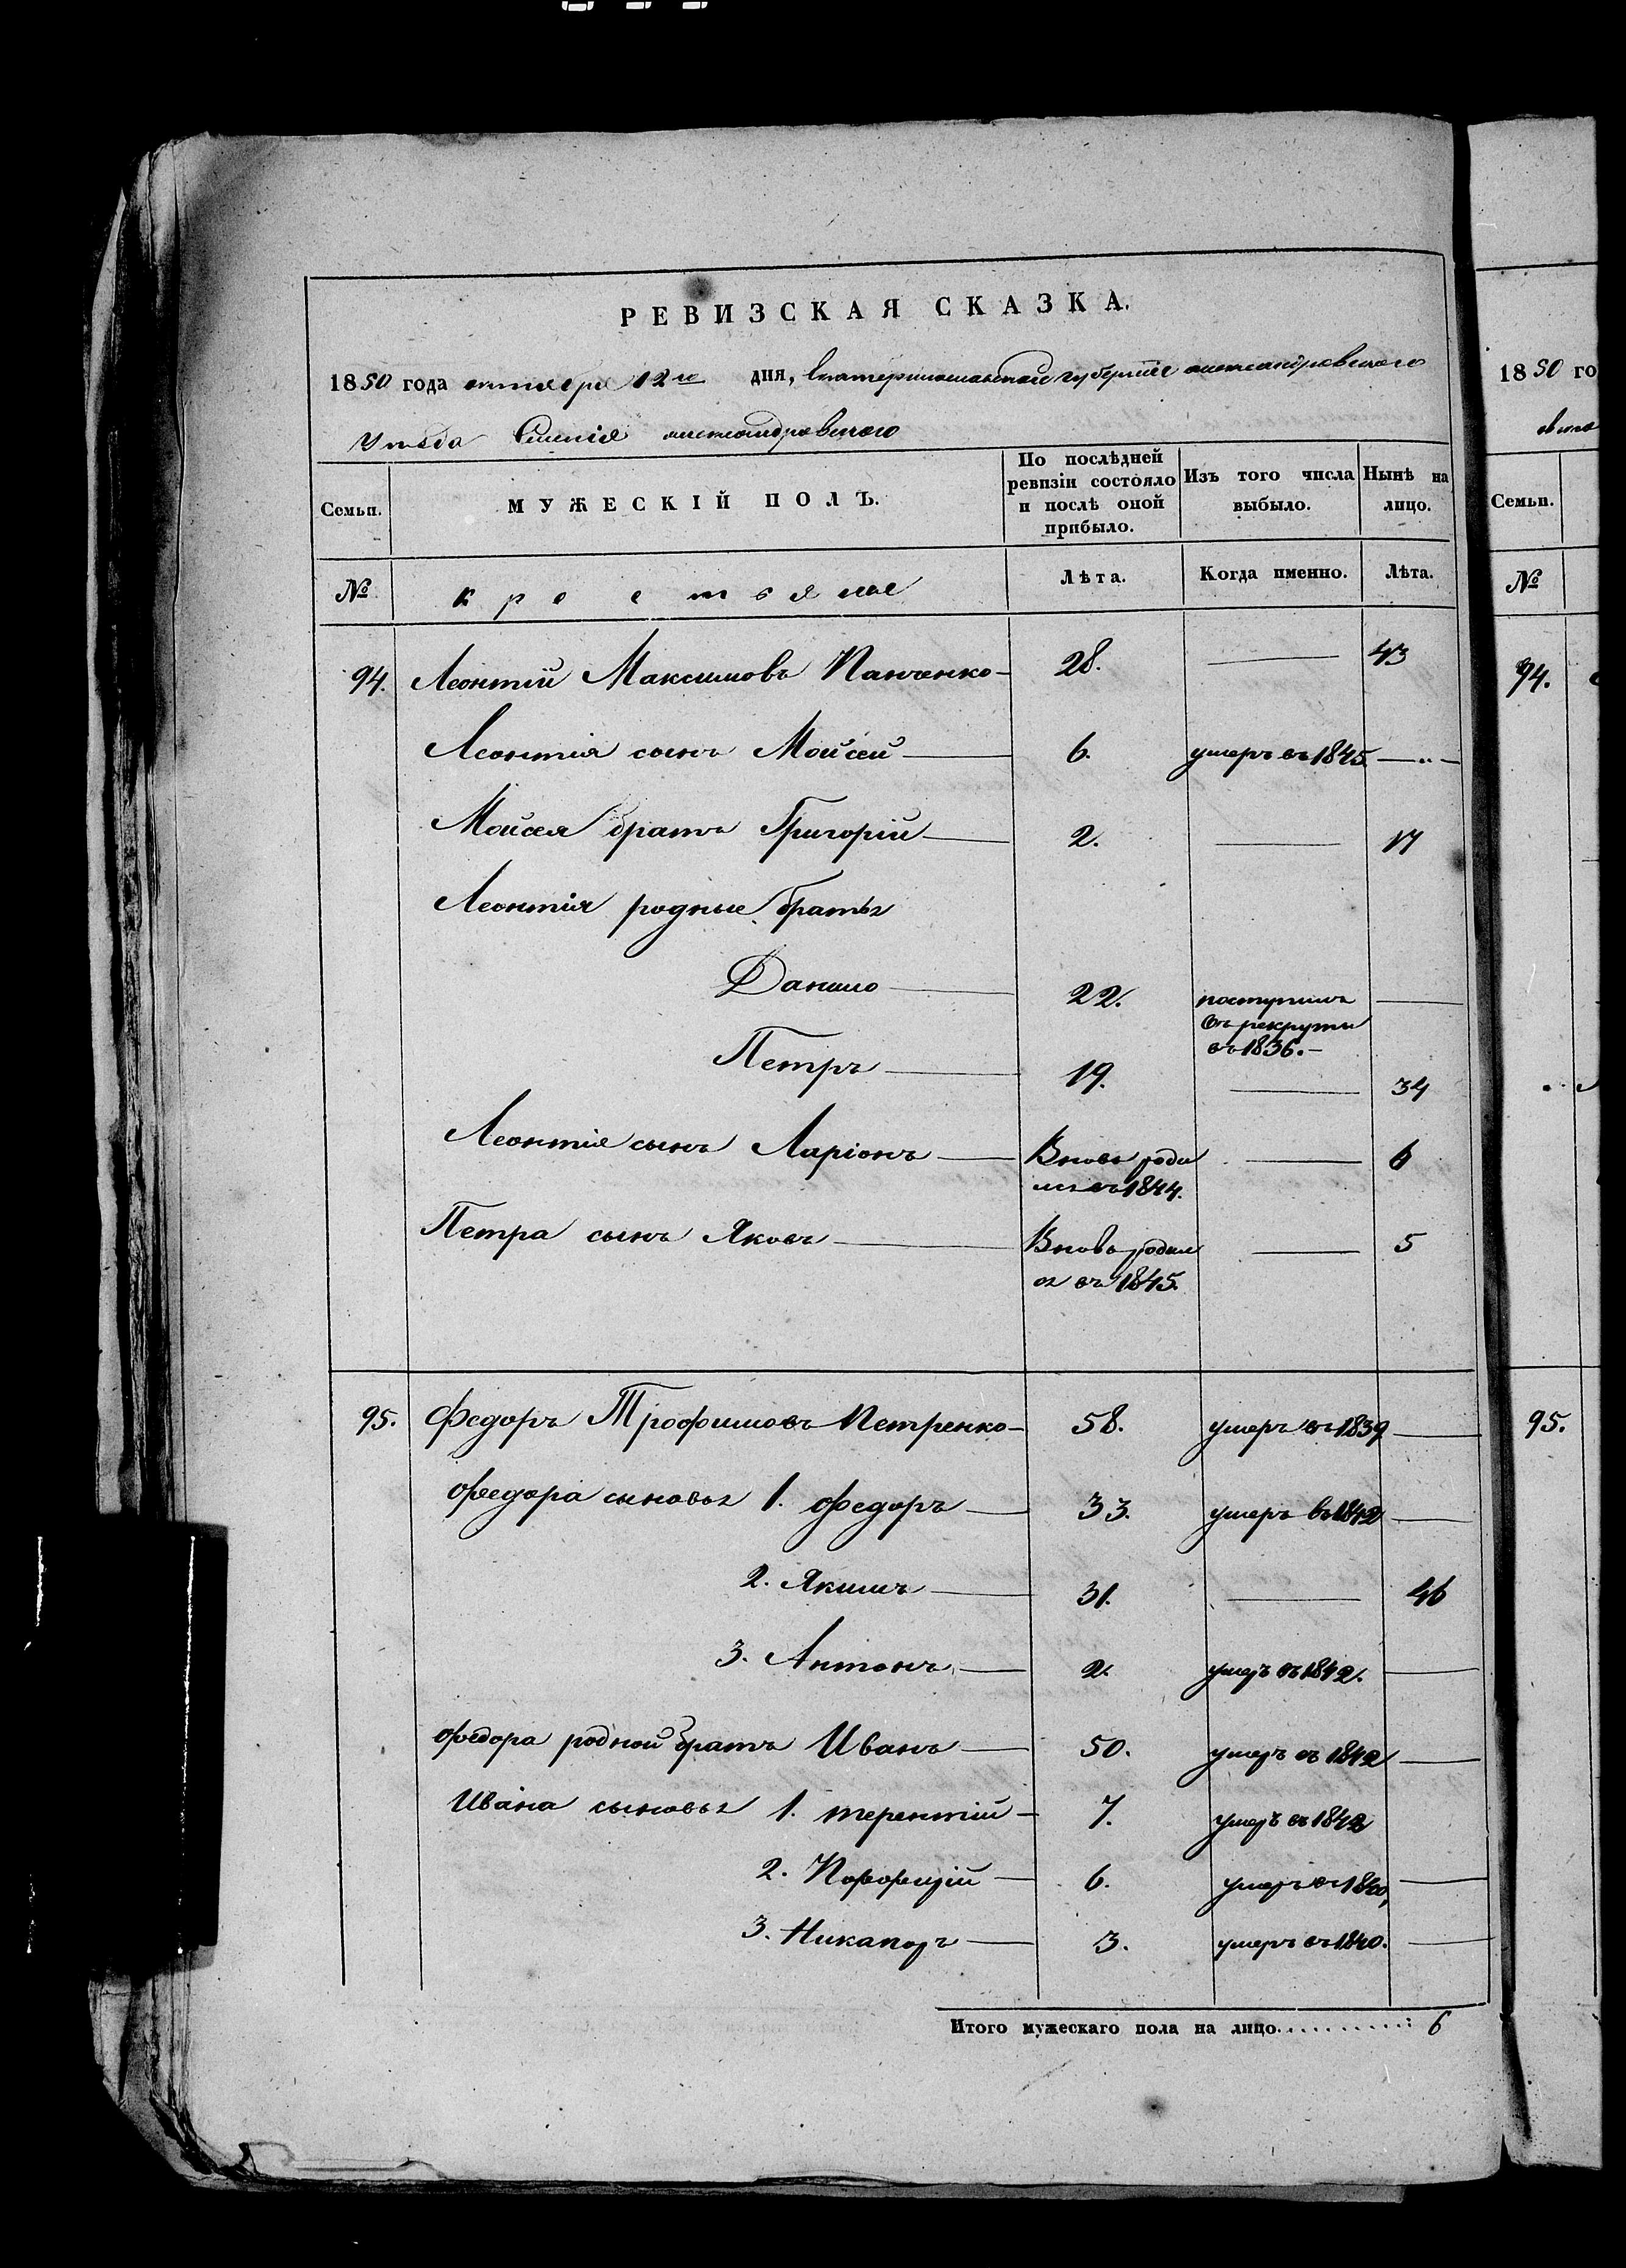 РЕВИЗСКАЯ СКАЗКА.
1850 года октября 12го дня, Екатеринославской губернiи Александровскаго
Уезда Селенiя Александровскаго
Семьи.
МУЖЕСКIЙ ПОЛЪ.
По послѣдней ревизiи состояло и послѣ оной прибыло.
Изъ того числа выбыло.
Нынѣ на лицо.
№
крестьяне
Лѣта.
Когда именно.
Лѣта.
94. Леонтiй Максимовъ Панченко 28. 43
Леонтiя сынъ Мойсей 6. умеръ въ 1845.
Мойсея братъ Григорiй 2. 17
Леонтiя родные братья
Данило 22. поступилъ
въ рекруты
въ 1836.
Петръ 19. 34
Леонтiя сынъ Ларiонъ Вновь роди 6
лся въ 1844.
Петра сынъ Яковъ Вновь родил 5
ся въ 1845.
95. Федоръ Трофимовъ Петренко 58. умеръ въ 1839
Федора сыновья 1. Федоръ 33. умеръ въ 1842
2. Якимъ 31. 46
3. Антонъ 2. умеръ въ 1842.
Федора родной братъ Иванъ 50. умеръ въ 1842
Ивана сыновья 1. терентiй 7. умеръ въ 1842
2. 6. умеръ въ 1840,
3. Никаноръ 3. умеръ въ 1840.
Итого мужескаго пола на лицо 6
1850 го
Семьи.
№
94.
95.